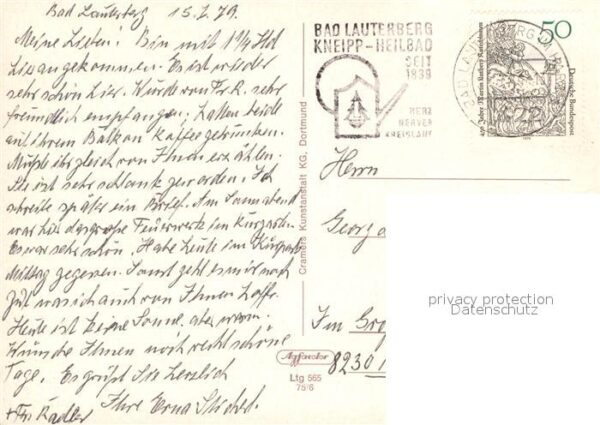 Bad Lauterberg 15.7.79.
Meine Lieben! Bin mit 1 1/4 Std
hier angekommen. Es ist wieder
sehr schön hier. Wurde von Fr. K. sehr
freundlich empfangen, haben beide
auf ihrem Balkon Kaffee getrunken.
Mußte ihr gleich von Ihnen erzählen.
Sie ist sehr schlank geworden. Ich
schreibe später ein Brief. Am Sonnabend
war hier das große Feuerwerk im Kurgarten.
Es war sehr schön. Habe heute im Kurpark
Mittag gegessen. Sonst geht es mir noch
gut was ich auch von Ihnen hoffe.
Heute ist keine Sonne, aber warm.
Wünsche Ihnen noch recht schöne
Tage. Es grüßt Sie herzlich
Ihre Erna
+ Frl. Radler
Cramers Kunstanstalt KG, Dortmund
BAD LAUTERBERG
KNEIPP-HEILBAD
SEIT
1839
HERZ
NERVEN
KREISLAUF
50
Deutsche Bundespost
Herrn
Georg
Im
8230
Ltg 565
75/6
privacy protection
Datenschutz